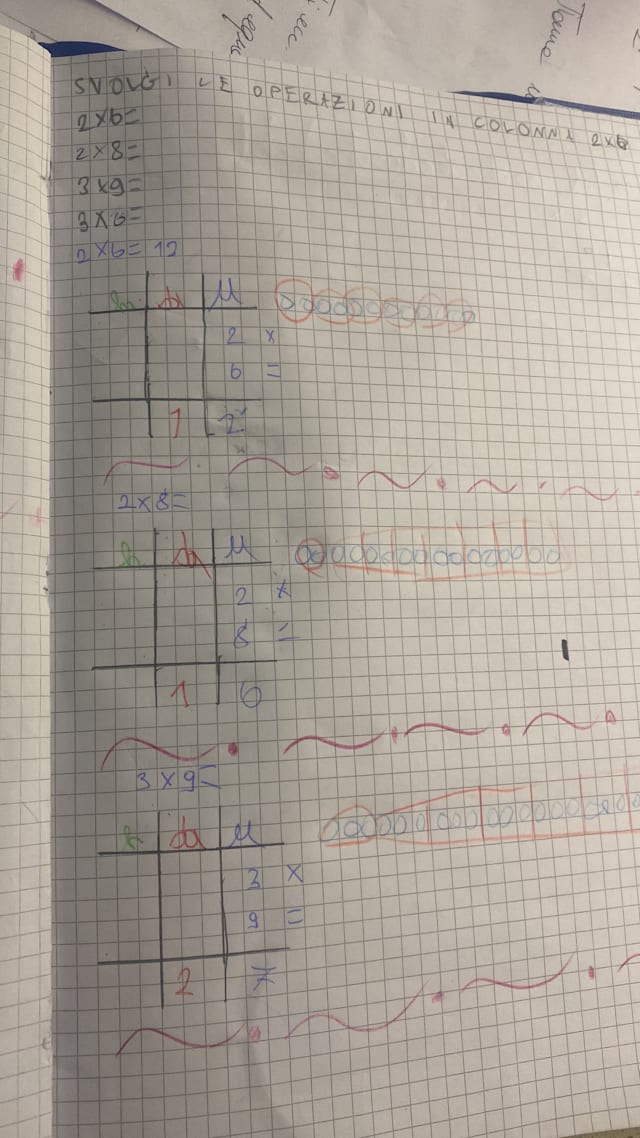 SVOLGI LE OPERAZIONI IN COLONNA 2x6
2x6=
2x8=
3x9=
3x6=
2x6=12
h da u
2 x
6 =
1 2
2x8=
h da u
2 x
8 =
1 6
3x9=
h da u
3 x
9 =
2 7